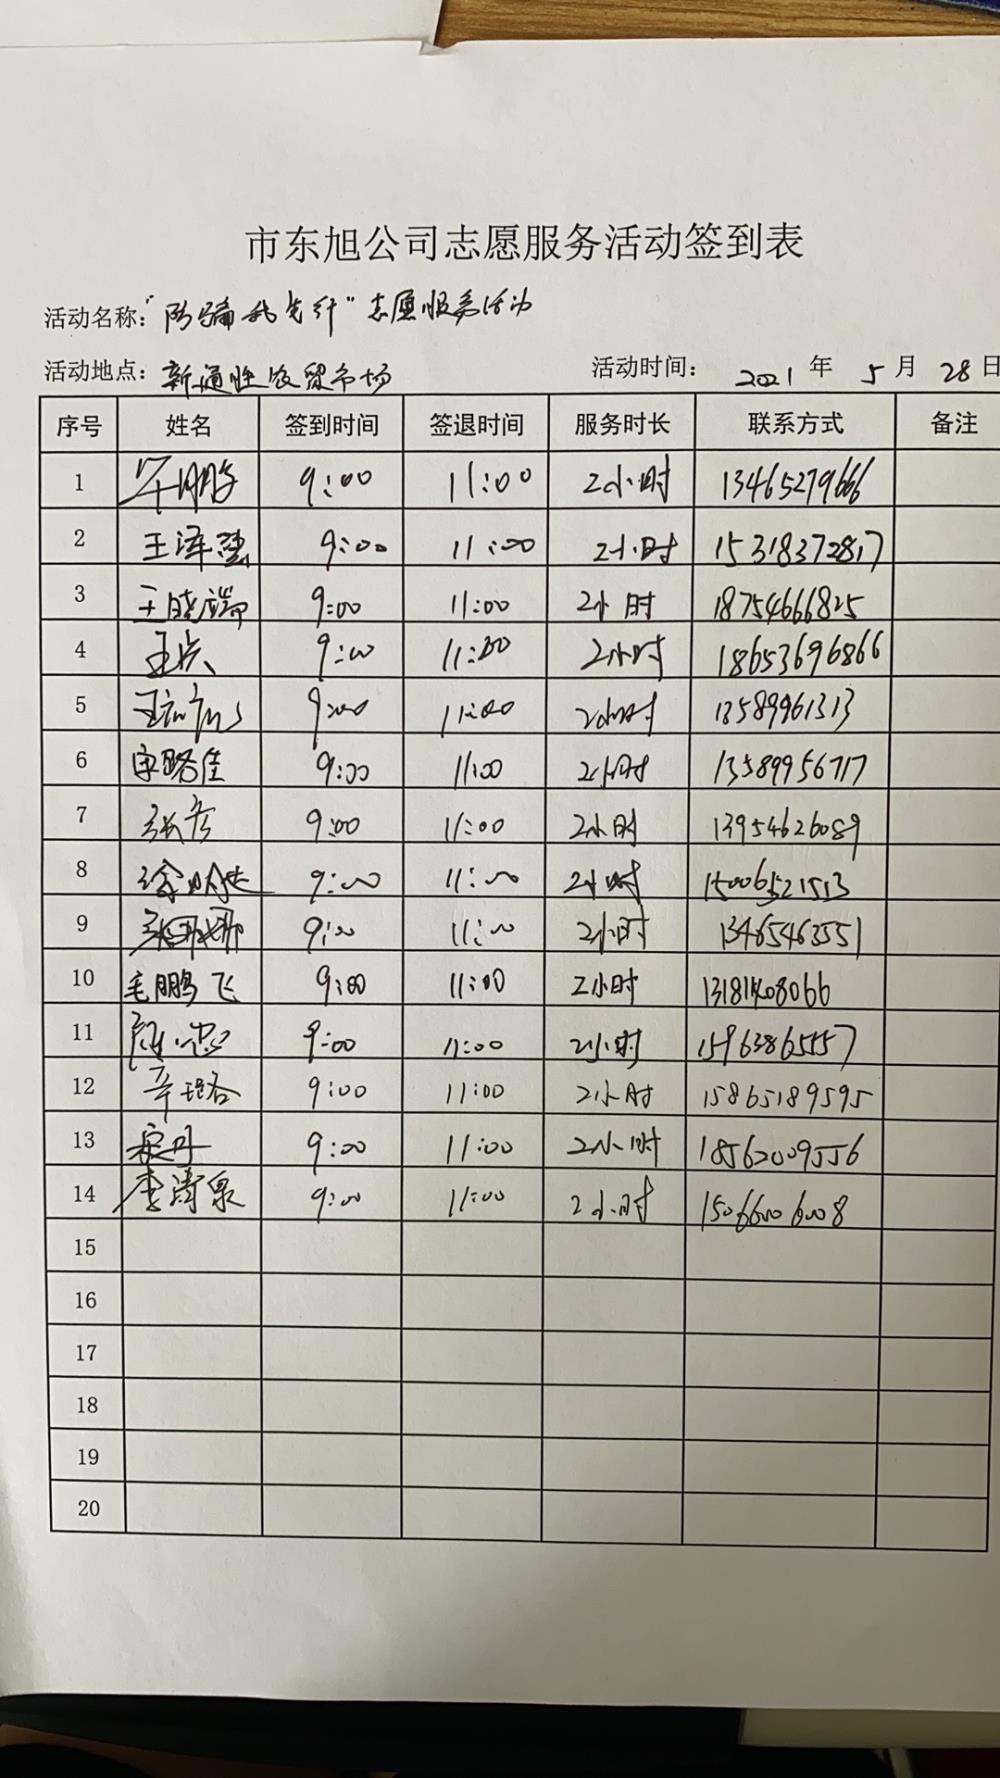 市东旭公司志愿服务活动签到表
活动名称:"防骗我先行"志愿服务活动
活动地点: 新通胜农贸市场 活动时间: 2021 年 5 月 28 日
序号 姓名 签到时间 签退时间 服务时长 联系方式 备注
1 9:00 11:00 2小时 13465279666
2 王泽强 9:00 11:00 2小时 15318372817
3 王晓瑞 9:00 11:00 2小时 18754666825
4 9:00 11:00 2小时 18653696866
5 9:00 11:00 2小时 13589961313
6 宋路佳 9:00 11:00 2小时 13589956717
7 张芳 9:00 11:00 2小时 13954626089
8 9:00 11:00 2小时 15006521513
9 张娜娜 9:00 11:00 2小时 13465463551
10 毛鹏飞 9:00 11:00 2小时 13181408066
11 9:00 11:00 2小时 15963865557
12 辛璐 9:00 11:00 2小时 15865189595
13 宋丹 9:00 11:00 2小时 18562009556
14 李涛泉 9:00 11:00 2小时 15066006008
15
16
17
18
19
20